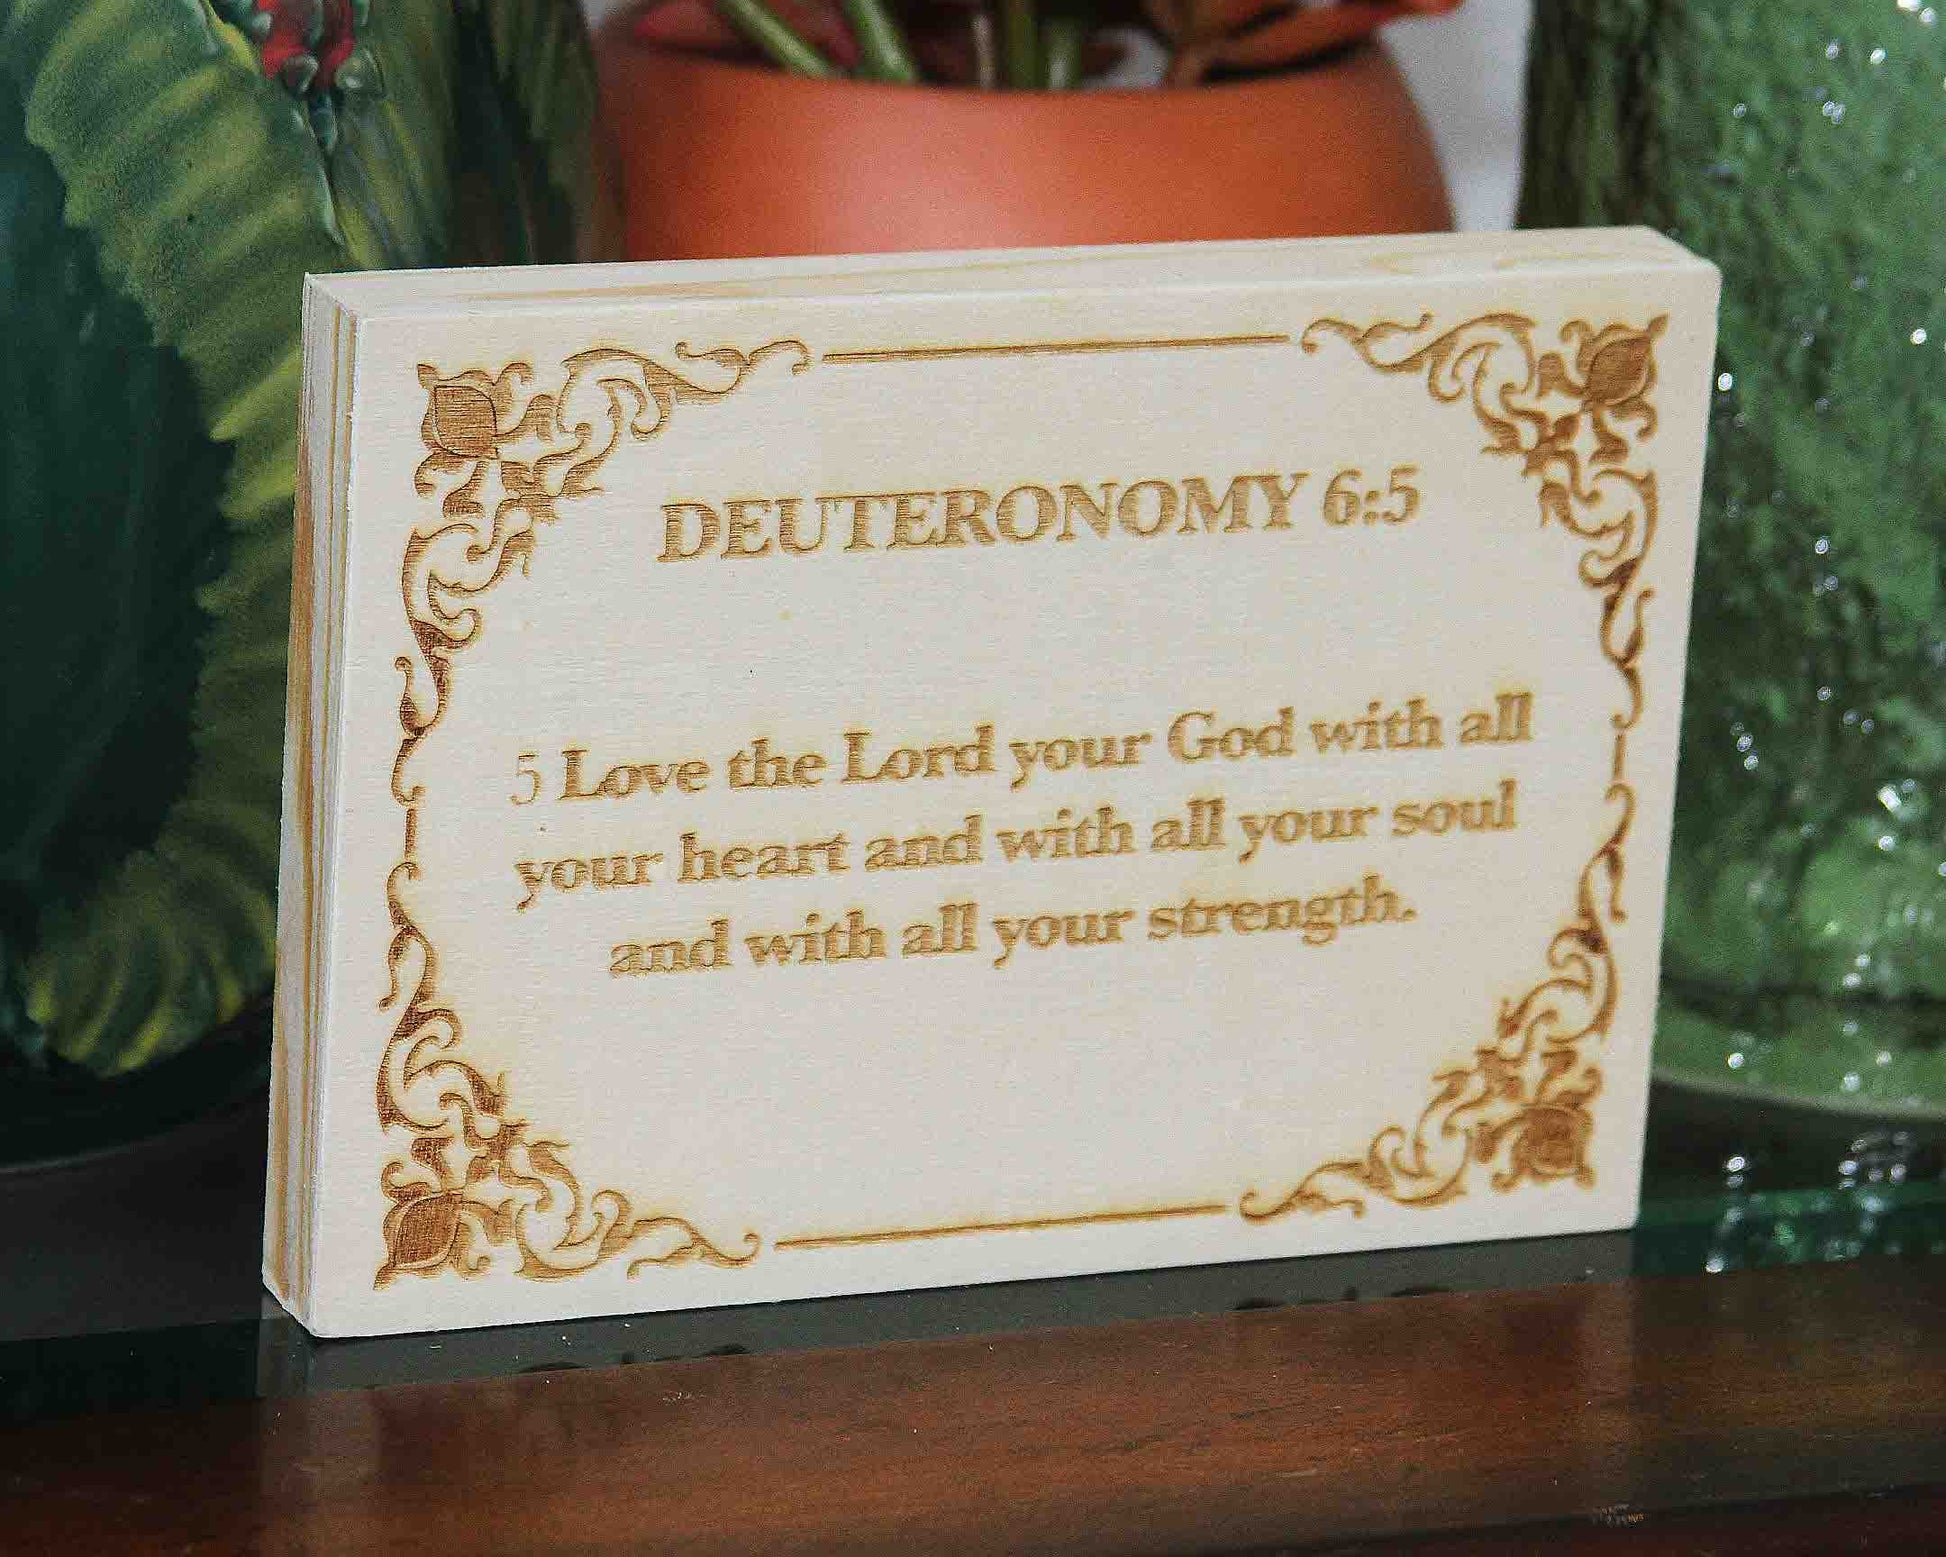 DEUTERONOMY 6:5
5 Love the Lord your God with all
your heart and with all your soul
and with all your strength.